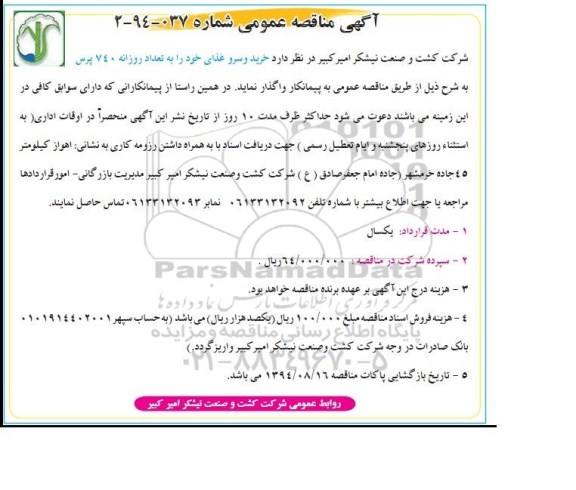 آگهی مناقصه عمومی شماره ۰۳۷-۹۴-۲
شرکت کشت و صنعت نیشکر امیرکبیر در نظر دارد خرید وسرو غذای خود را به تعداد روزانه ۷۴۰ پرس
به شرح ذیل از طریق مناقصه عمومی به پیمانکار واگذار نماید. در همین راستا از پیمانکارانی که دارای سوابق کافی در
این زمینه می باشند دعوت می شود حداکثر ظرف مدت ۱۰ روز از تاریخ نشر این آگهی منحصراً در اوقات اداری( به
استثناء روزهای پنجشنبه و ایام تعطیل رسمی ) جهت دریافت اسناد با به همراه داشتن رزومه کاری به نشانی: اهواز کیلومتر
۴۵جاده خرمشهر (جاده امام جعفرصادق ( ع ) شرکت کشت وصنعت نیشکر امیر کبیر مدیریت بازرگانی- امورقراردادها
مراجعه یا جهت اطلاع بیشتر با شماره تلفن ۰۶۱۳۳۱۳۲۰۹۲ نمابر ۰۶۱۳۳۱۳۲۰۹۳تماس حاصل نمایند.
۱ - مدت قرارداد: یکسال
۲ - سپرده شرکت در مناقصه : ۶۴/۰۰۰/۰۰۰ریال .
ParsNamadData
۳ - هزینه درج این آگهی بر عهده برنده مناقصه خواهد بود.
۴ - هزینه فروش اسناد مناقصه مبلغ ۱۰۰/۰۰۰ ریال (یکصد هزار ریال) می باشد (به حساب سپهر ۰۱۰۱۹۱۴۴۰۲۰۰۱
پایگاه اطلاع رسانی مناقصه و مزایده
بانک صادرات در وجه شرکت کشت وصنعت نیشکر امیرکبیر واریز گردد.)
۰۲۱-۸۸۳۴۹۶۷۰-۵
۵ - تاریخ بازگشایی پاکات مناقصه ۱۳۹۴/۰۸/۱۶ می باشد.
روابط عمومی شرکت کشت و صنعت نیشکر امیر کبیر